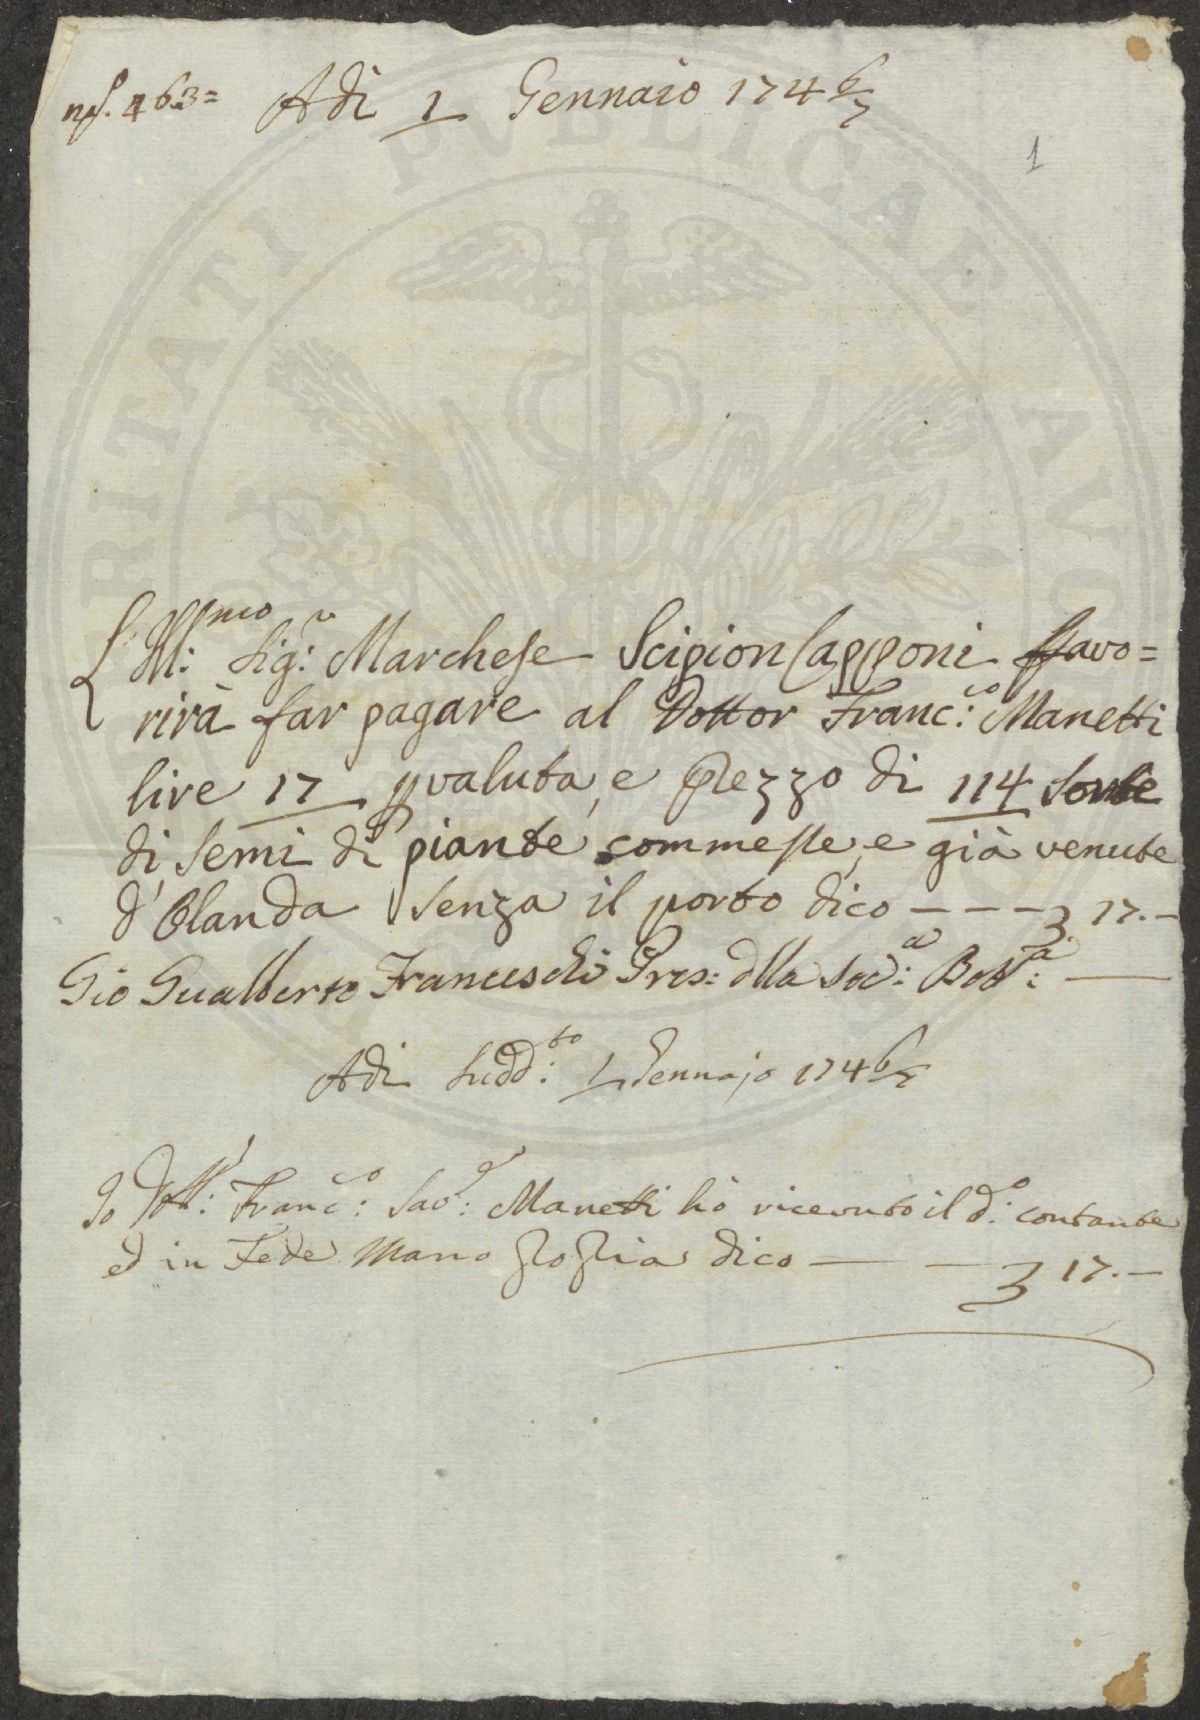 nº. 463=
Adì 1 Gennaio 174 6/7
1
Ill:mo Sig:r Marchese Scipion Capponi favo=
rirà far pagare al Dottor Franc:co Manetti
lire 17 p valuta, e prezzo di 114 sorte
di semi di piante commesse, e già venute
d'Olanda senza il porto dico - - - 17.-
Gio Gualberto Franceschi Pres: dlla Soc:a Bot:a
Adì Sudd:to 1 Gennajo 174 6/7
Io Dott: Franc:co Sav:r Manetti hò ricevuto il d:o contante
ed in Fede Mano propria dico — — 17.—
PVBLICAE